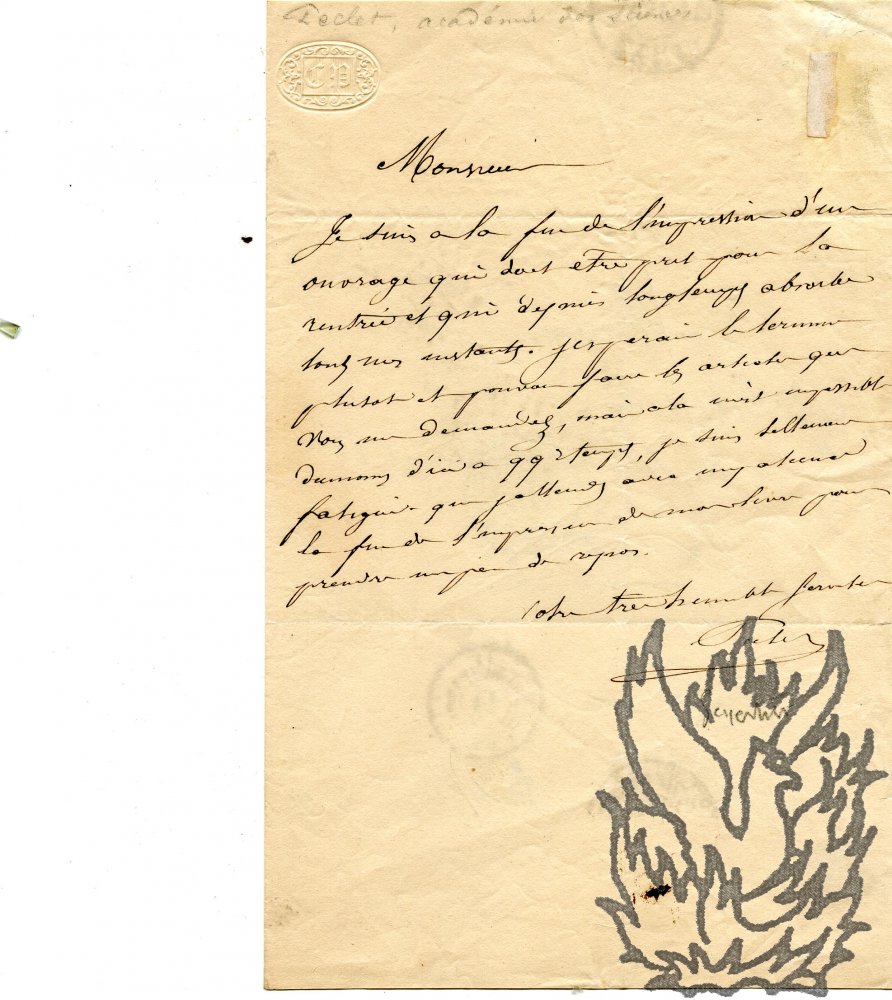 Peclet, académie des Sciences
CP
Monsieur
Je suis a la fin de l'impression d'un
ouvrage qui doit etre pret pour la
rentrée et qui depuis longtemps absorbe
tous mes instants. j'esperais le terminer
plutot et pouvoir faire les articles que
vous me demandez, mais cela m'est impossible
dumoins d'ici a qq temps, je suis tellement
fatigué que j'attends avec impatience
la fin de l'impression de mon livre pour
prendre un peu de repos.
Votre tres humble serviteur
Peclet